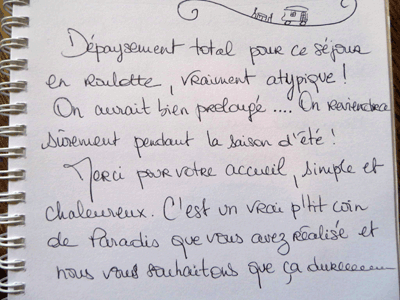 Dépaysement total pour ce séjour
en roulotte, vraiment atypique !
On aurait bien prolongé .... On reviendra
sûrement pendant la saison d'été !
Merci pour votre accueil, simple et
chaleureux. C'est un vrai p'tit coin
de Paradis que vous avez réalisé et
nous vous souhaitons que ça dureeeeee